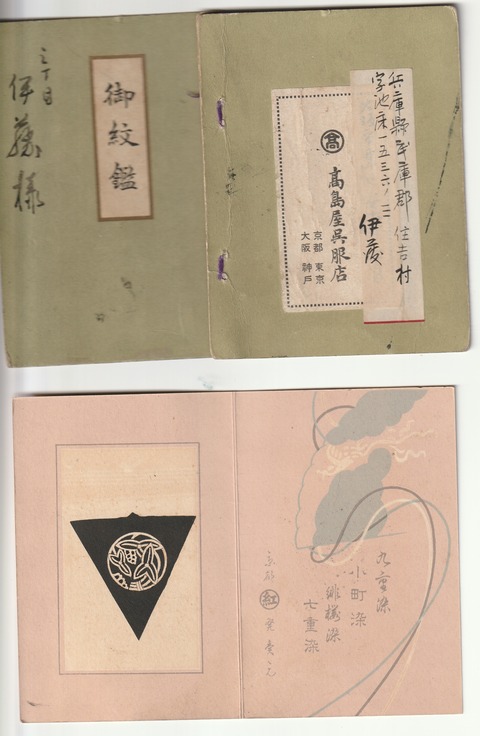 三丁目
伊藤様
御紋鑑
兵庫縣武庫郡住吉村
字池床一五三六ノ二
伊藤
髙
髙島屋呉服店
京都 東京
大阪 神戸
九重染
小町染
緋桜染
七重染
京都 紅 発売元